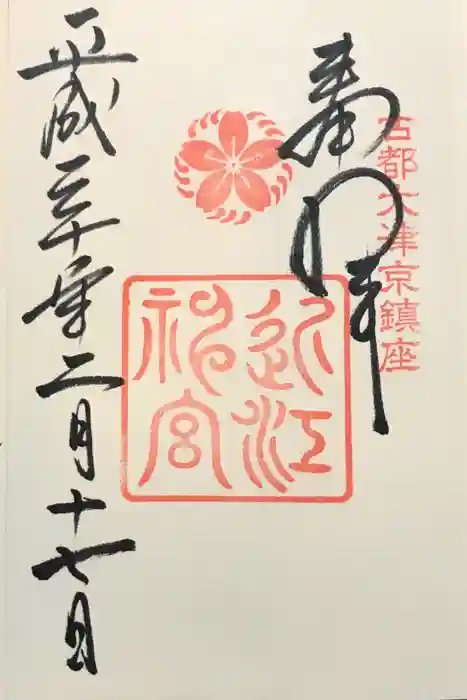 古都大津京鎮座
奉拝
近江
神宮
平成三十年二月十七日